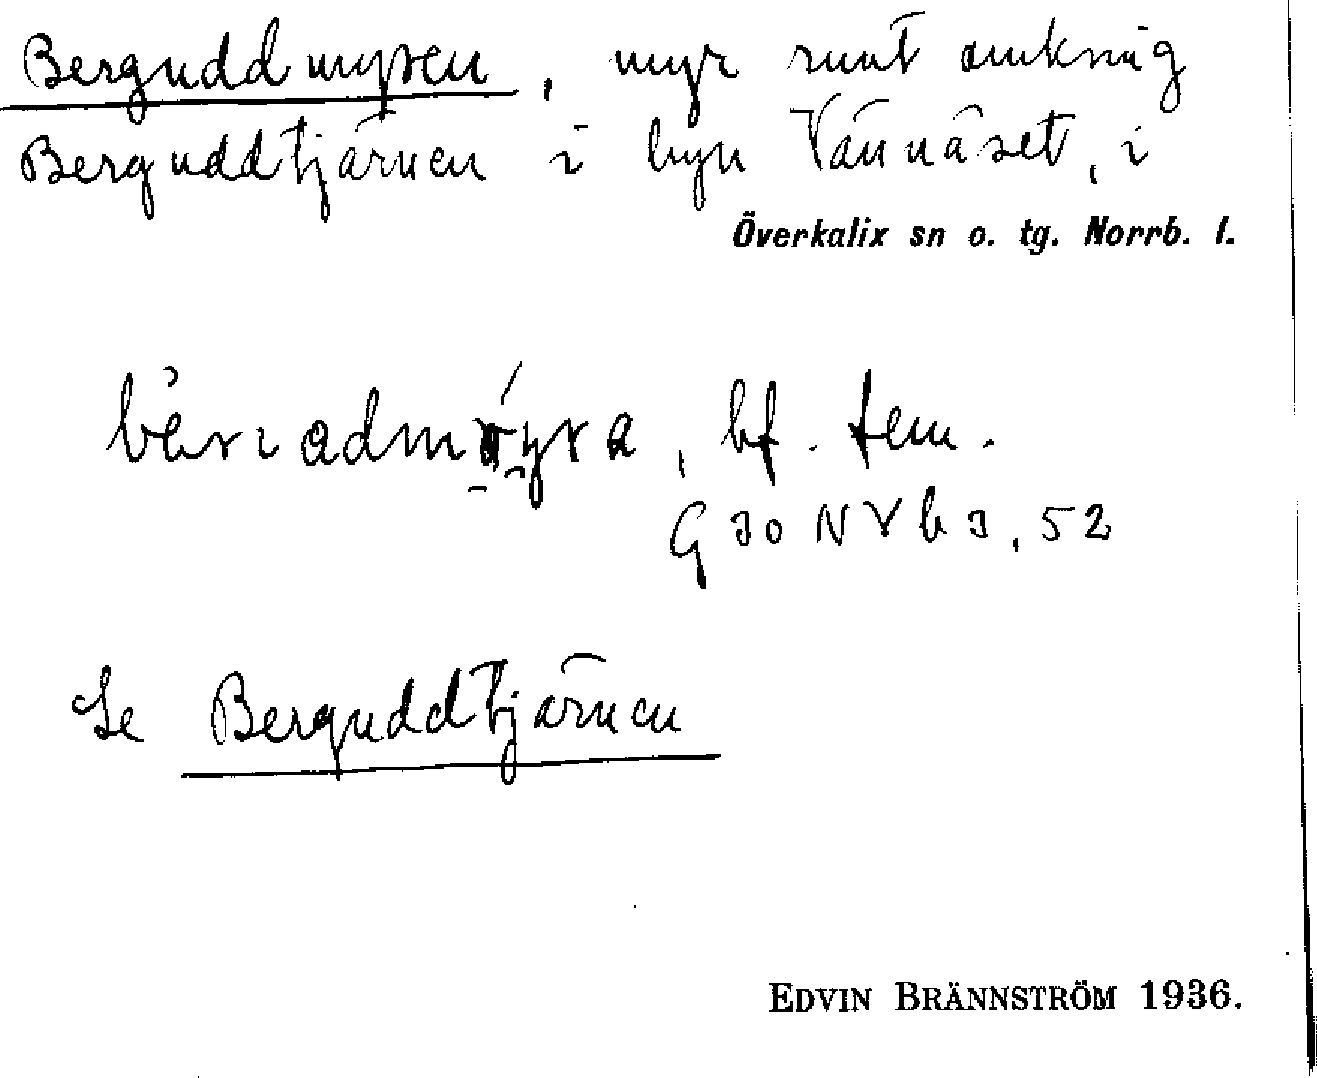 Berguddmyren, myr runt omkring
Berguddtjärnen i byn Vännäset, i
Överkalix sn o. tg. Norrb. l.
bf. fem.
G 30 N V b 3, 52
Se Berguddtjärnen
EDVIN BRÄNNSTRÖM 1936.